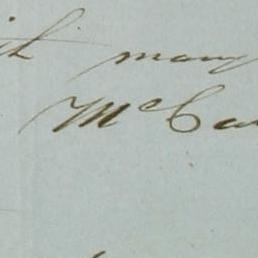 ith many
McCa